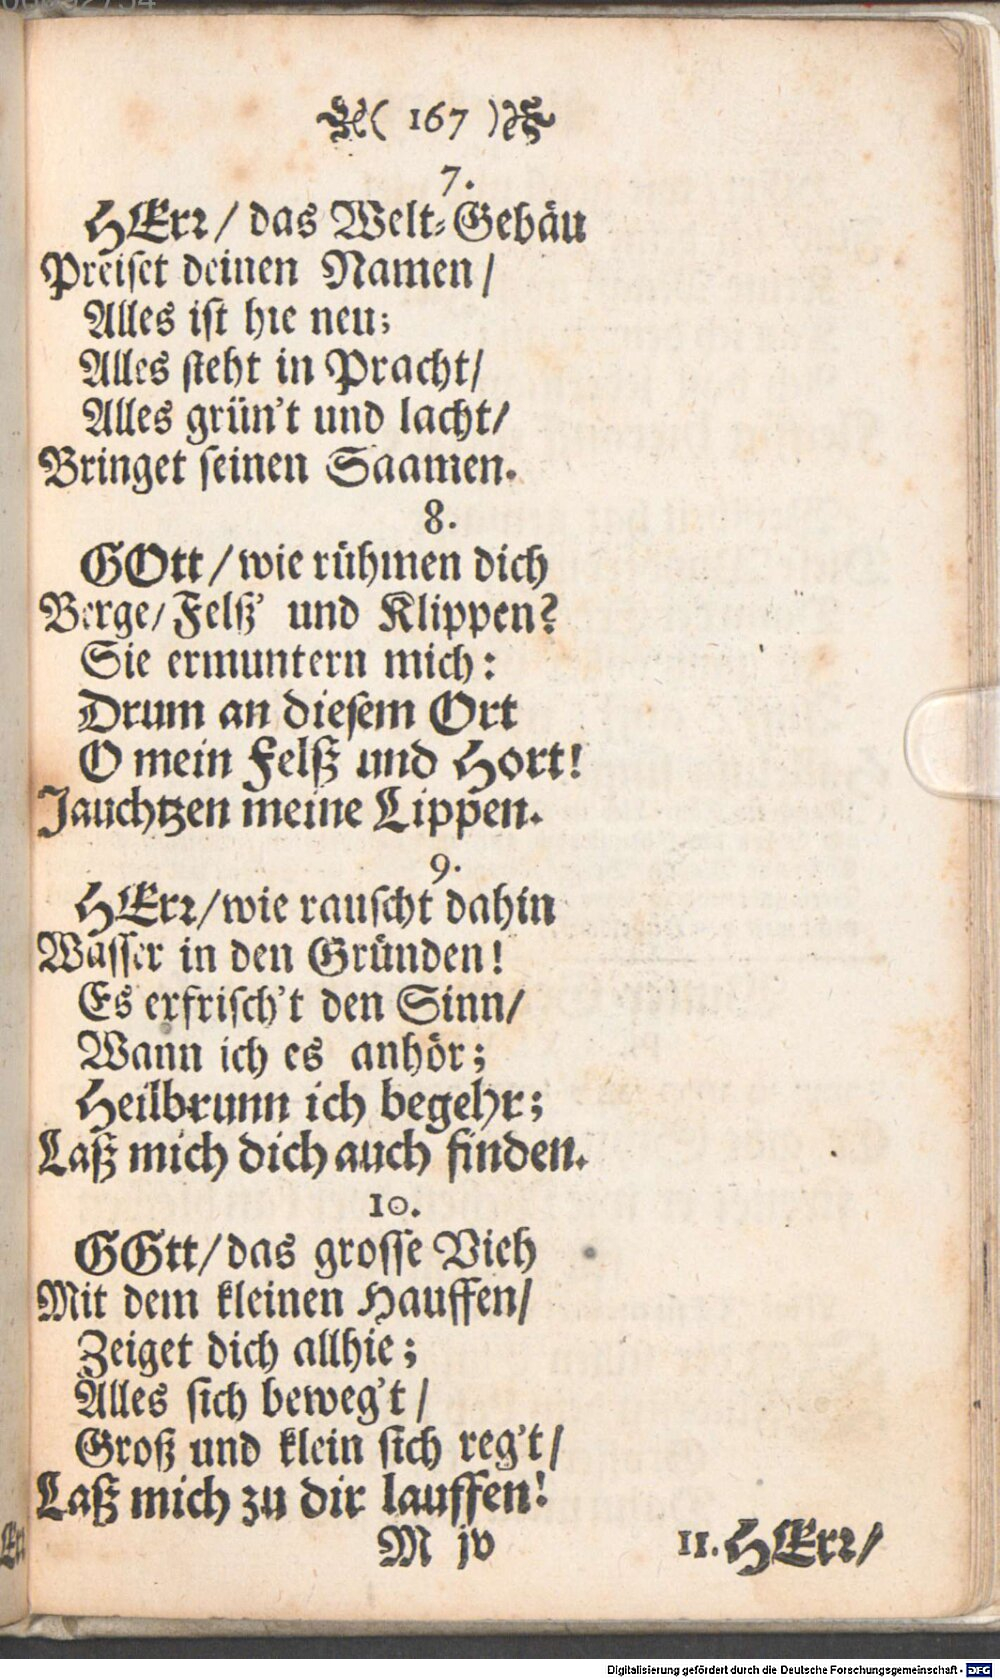 ( 167 )
7.
HErr / das Welt-Gebäu
Preiset deinen Namen /
Alles ist hie neu;
Alles steht in Pracht/
Alles grün't und lacht/
Bringet seinen Saamen.
8.
GOtt / wie rühmen dich
Berge/ Felß' und Klippen?
Sie ermuntern mich:
Drum an diesem Ort
O mein Felß und Hort!
Jauchtzen meine Lippen.
9.
HErr/wie rauscht dahin
Wasser in den Gründen!
Es erfrisch't den Sinn/
Wann ich es anhör;
Heilbrunn ich begehr;
Laß mich dich auch finden.
10.
GGtt/das grosse Vieh
Mit dem kleinen Hauffen/
Zeiget dich allhie;
Alles sich beweg't /
Groß und klein sich reg't/
Laß mich zu dir lauffen!
M jv 11.HErr/
Digitalisierung gefördert durch die Deutsche Forschungsgemeinschaft - DFG